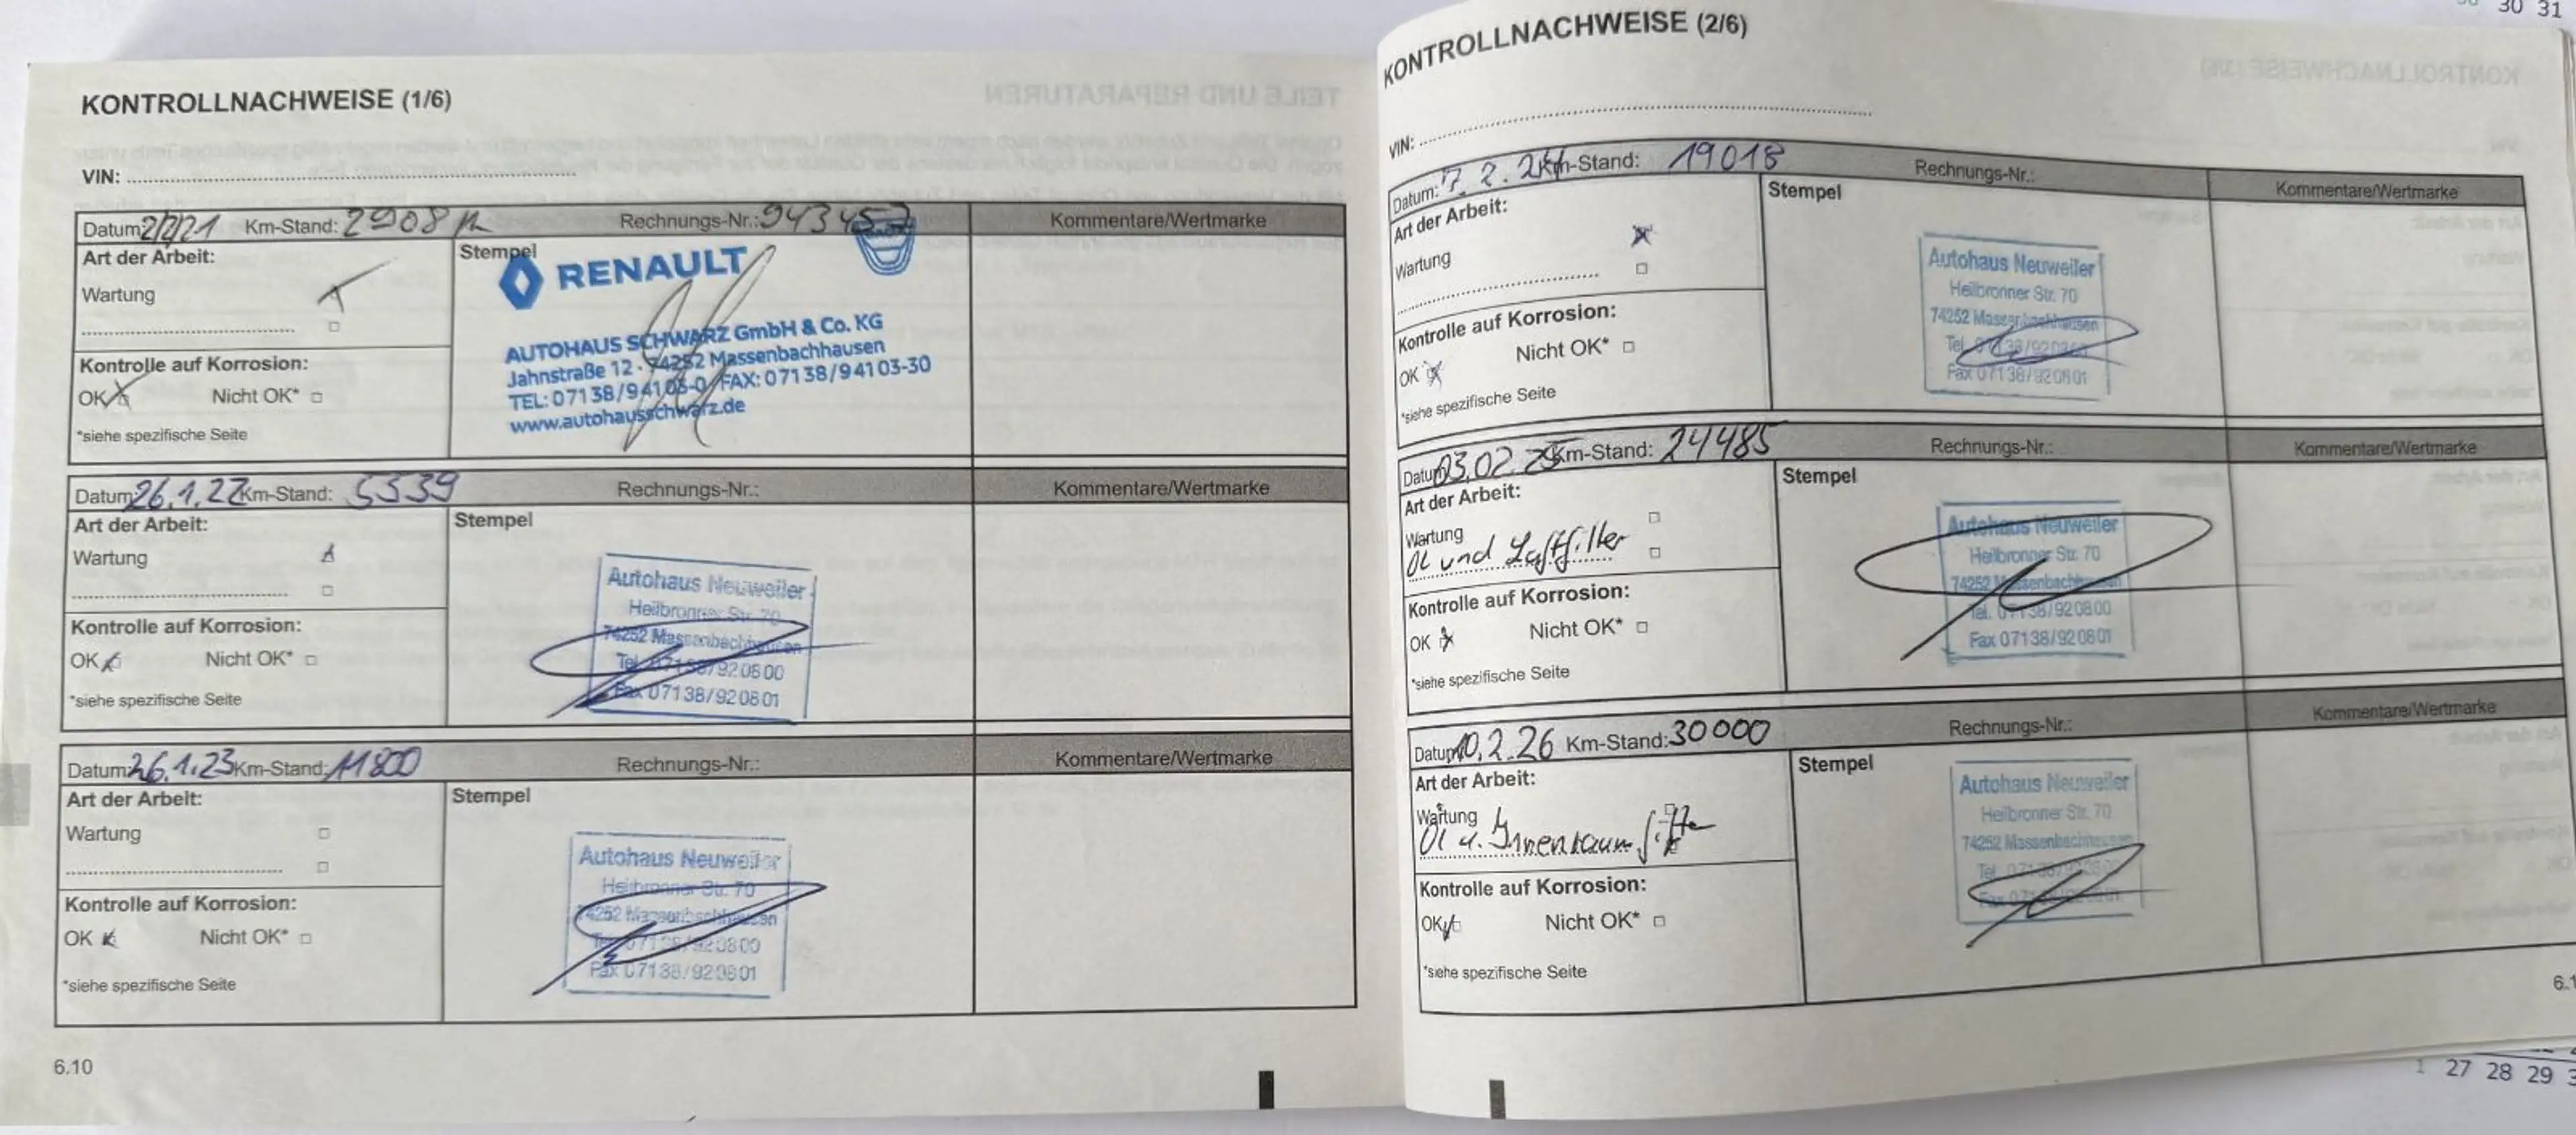 KONTROLLNACHWEISE (1/6)
VIN:
Datum: 2/2/21 Km-Stand: 2908 Rechnungs-Nr.: Kommentare/Wertmarke
Art der Arbeit:
Wartung
Kontrolle auf Korrosion:
OK Nicht OK* □
*siehe spezifische Seite
Stempel
RENAULT
DACIA
AUTOHAUS SCHWARZ GmbH & Co. KG
Jahnstraße 12 · 74252 Massenbachhausen
TEL: 07138/94103-0/FAX: 07138/94103-30
www.autohausschwarz.de
Datum: 26.1.22 Km-Stand: 5539 Rechnungs-Nr.: Kommentare/Wertmarke
Art der Arbeit:
Wartung
Kontrolle auf Korrosion:
OK Nicht OK* □
*siehe spezifische Seite
Stempel
Autohaus Neuweiler
Heilbronner Str. 70
74252 Massenbachhausen
Tel. 07138/920800
Fax 07138/920801
Datum: 26.1.23 Km-Stand: 11800 Rechnungs-Nr.: Kommentare/Wertmarke
Art der Arbeit:
Wartung
Kontrolle auf Korrosion:
OK Nicht OK* □
*siehe spezifische Seite
Stempel
Autohaus Neuweiler
Heilbronner Str. 70
74252 Massenbachhausen
Tel. 07138/920800
Fax 07138/920801
6.10
KONTROLLNACHWEISE (2/6)
VIN:
Datum: 7.2.24 Km-Stand: 19018 Rechnungs-Nr.: Kommentare/Wertmarke
Art der Arbeit:
Wartung
Kontrolle auf Korrosion:
OK Nicht OK* □
*siehe spezifische Seite
Stempel
Autohaus Neuweiler
Heilbronner Str. 70
74252 Massenbachhausen
Tel. 07138/920800
Fax 07138/920801
Datum: 03.02.25 Km-Stand: 24485 Rechnungs-Nr.: Kommentare/Wertmarke
Art der Arbeit:
Wartung
Öl und Luftfilter
Kontrolle auf Korrosion:
OK Nicht OK* □
*siehe spezifische Seite
Stempel
Autohaus Neuweiler
Heilbronner Str. 70
74252 Massenbachhausen
Tel. 07138/920800
Fax 07138/920801
Datum: 10.2.26 Km-Stand: 30000 Rechnungs-Nr.: Kommentare/Wertmarke
Art der Arbeit:
Wartung
Öl u. Innenraumfilter
Kontrolle auf Korrosion:
OK Nicht OK* □
*siehe spezifische Seite
Stempel
Autohaus Neuweiler
Heilbronner Str. 70
74252 Massenbachhausen
Tel. 07138/920800
Fax 07138/920801
30 31
27 28 29